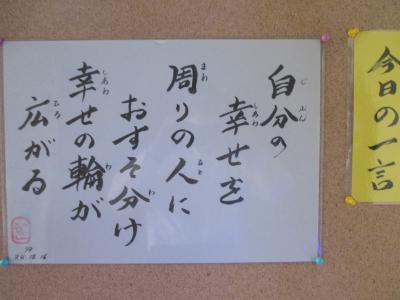 今日の一言
自分の
幸せを
周りの人に
おすそ分け
幸せの輪が
広がる